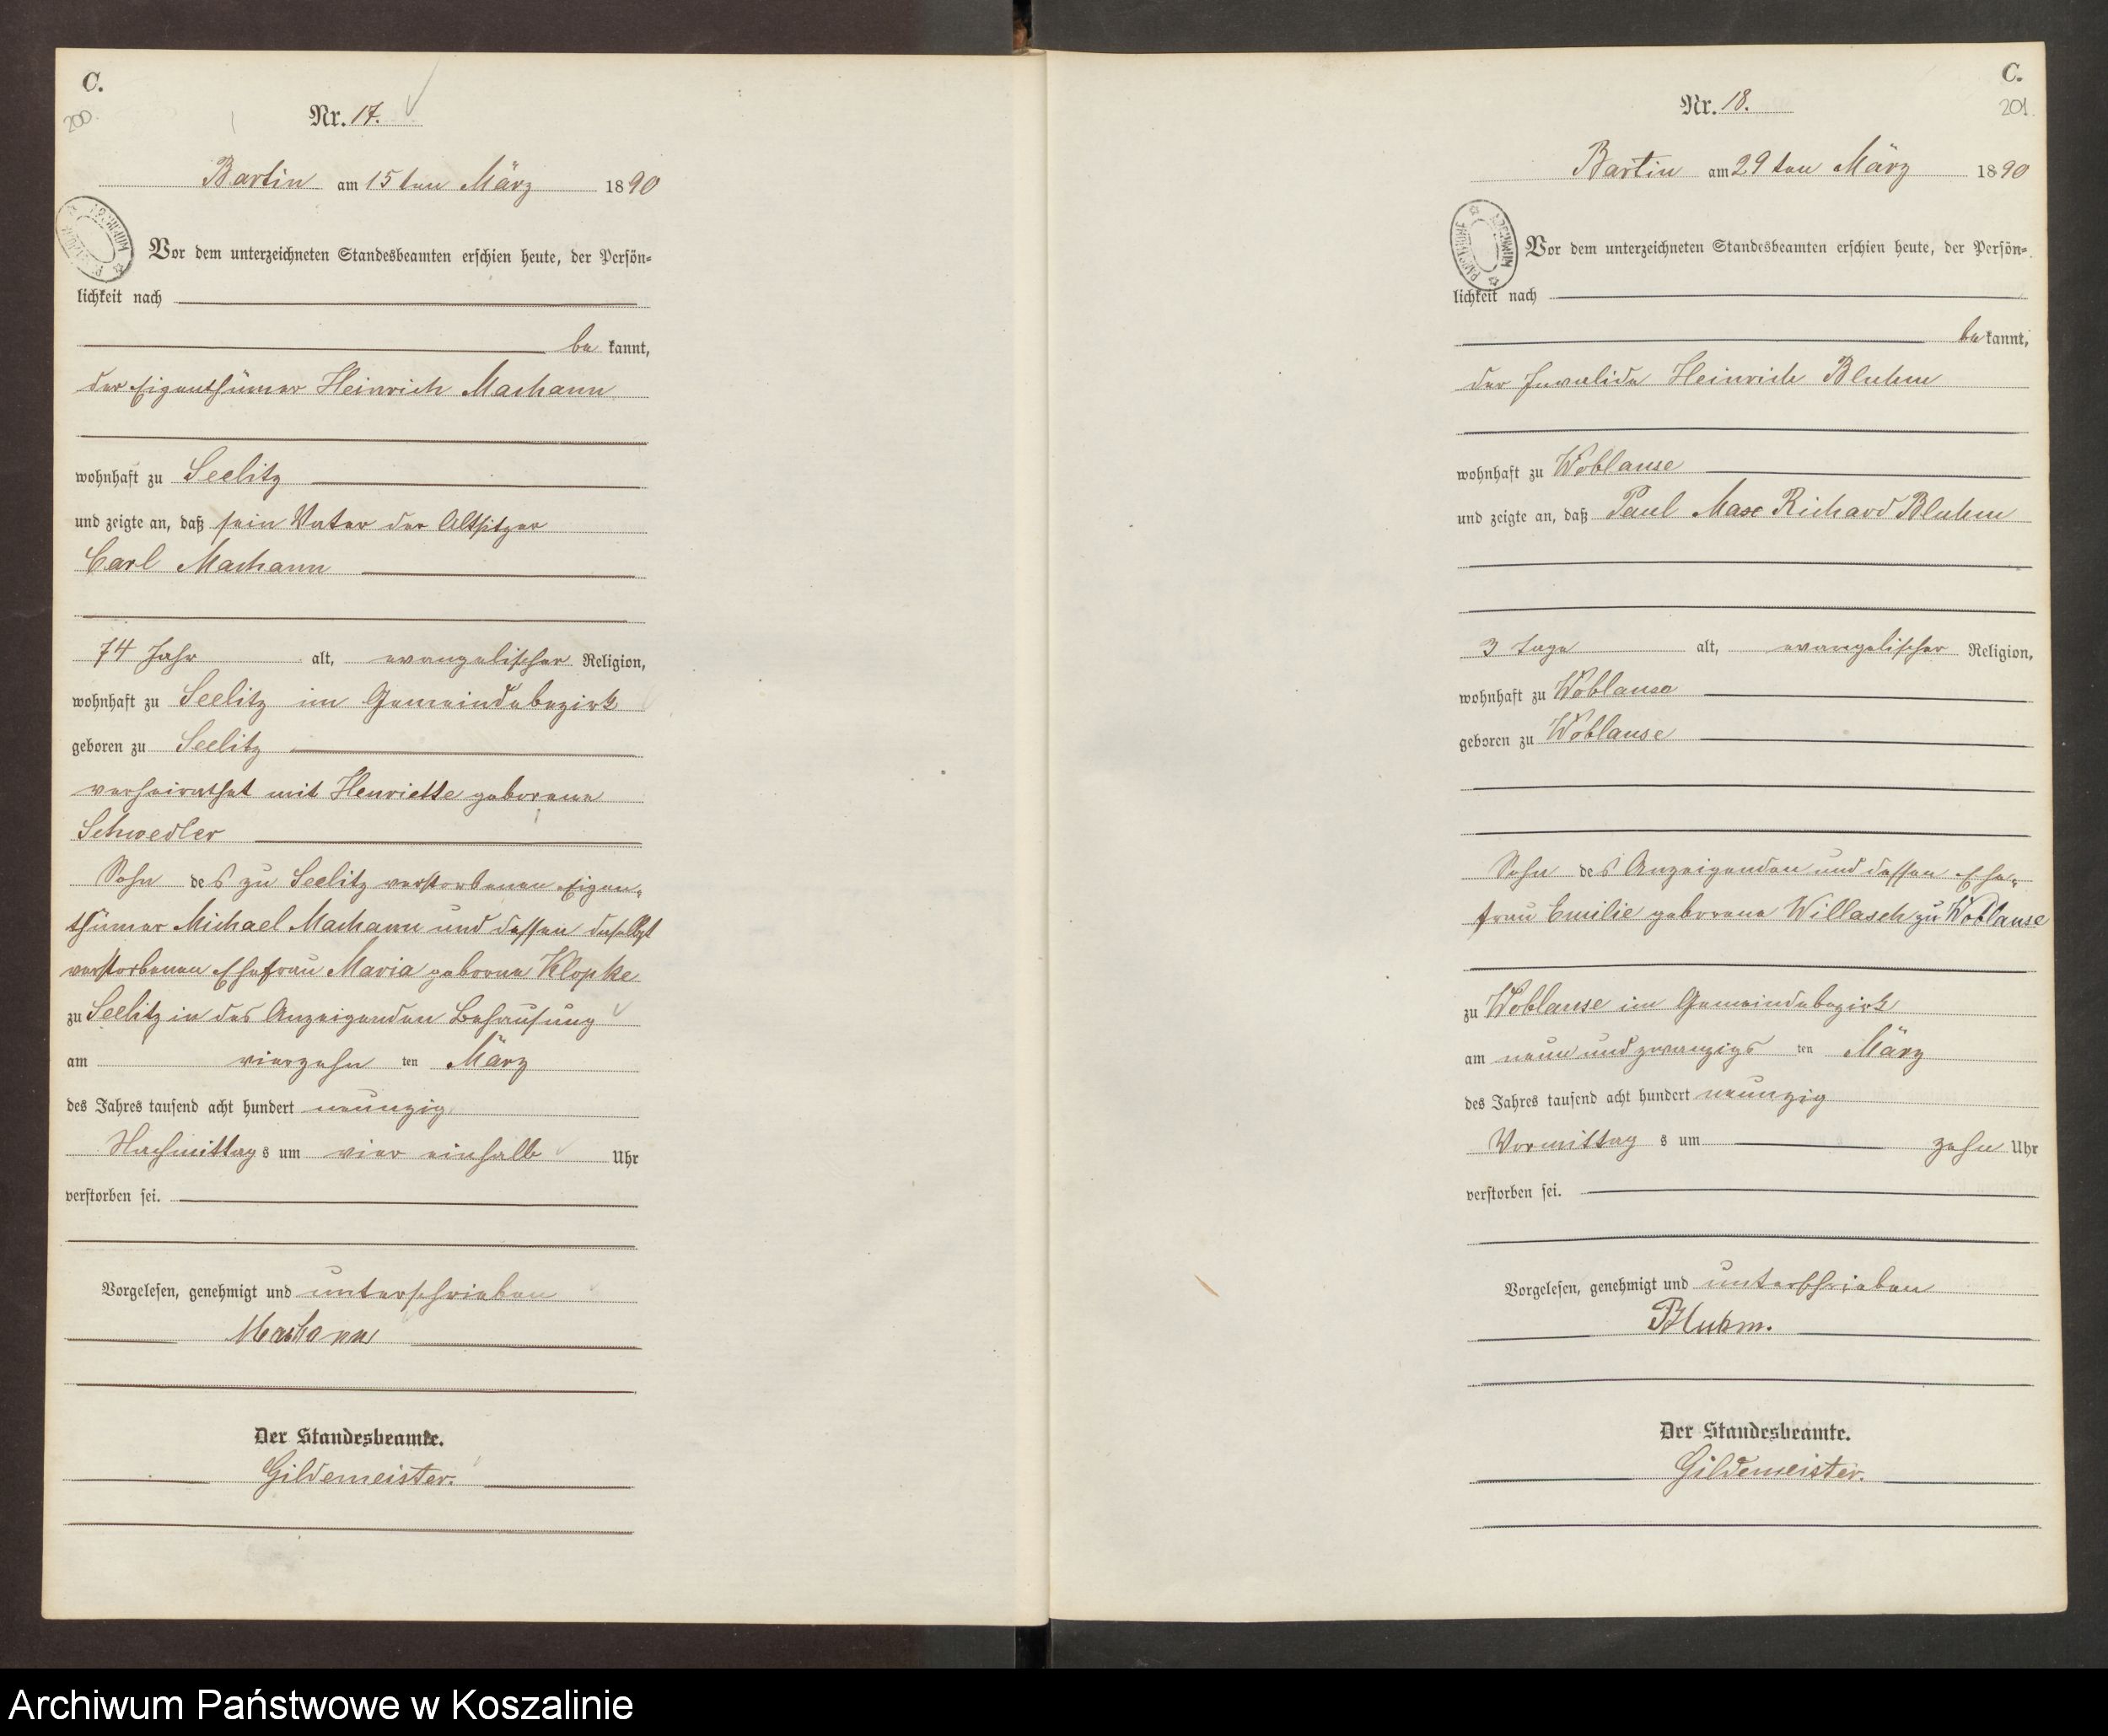 C.
200.
Nr. 17.
Bartin am 15 ten März 1890
Vor dem unterzeichneten Standesbeamten erschien heute, der Persön=
lichkeit nach
be kannt,
der Eigenthümer Heinrich Machann
wohnhaft zu Seelitz
und zeigte an, daß sein Vater der Altsitzer
Carl Machann
74 Jahr alt, evangelischer Religion,
wohnhaft zu Seelitz im Gemeindebezirk
geboren zu Seelitz
verheirathet mit Henriette geborene
Schwedler
Sohn des zu Seelitz verstorbenen Eigen=
thümer Michael Machann und dessen daselbst
verstorbenen Ehefrau Maria geborne Klopke
zu Seelitz in des Anzeigenden Behausung
am vierzehn ten März
des Jahres tausend acht hundert neunzig
Nachmittags um vier einhalb Uhr
verstorben sei.
Vorgelesen, genehmigt und unterschrieben
Machann
Der Standesbeamte.
Gildemeister.
C.
201.
Nr. 18.
Bartin am 29 ten März 1890
Vor dem unterzeichneten Standesbeamten erschien heute, der Persön=
lichkeit nach
be kannt,
der Invalide Heinrich Bluhm
wohnhaft zu Woblanse
und zeigte an, daß Paul Max Richard Bluhm
3 Tage alt, evangelischer Religion,
wohnhaft zu Woblanse
geboren zu Woblanse
Sohn des Anzeigenden und dessen Ehe=
frau Emilie geborene Willasch zu Woblanse
zu Woblanse im Gemeindebezirk
am neun und zwanzigs ten März
des Jahres tausend acht hundert neunzig
Vormittag s um zehn Uhr
verstorben sei.
Vorgelesen, genehmigt und unterschrieben
Bluhm.
Der Standesbeamte.
Gildemeister.
Archiwum Państwowe w Koszalinie